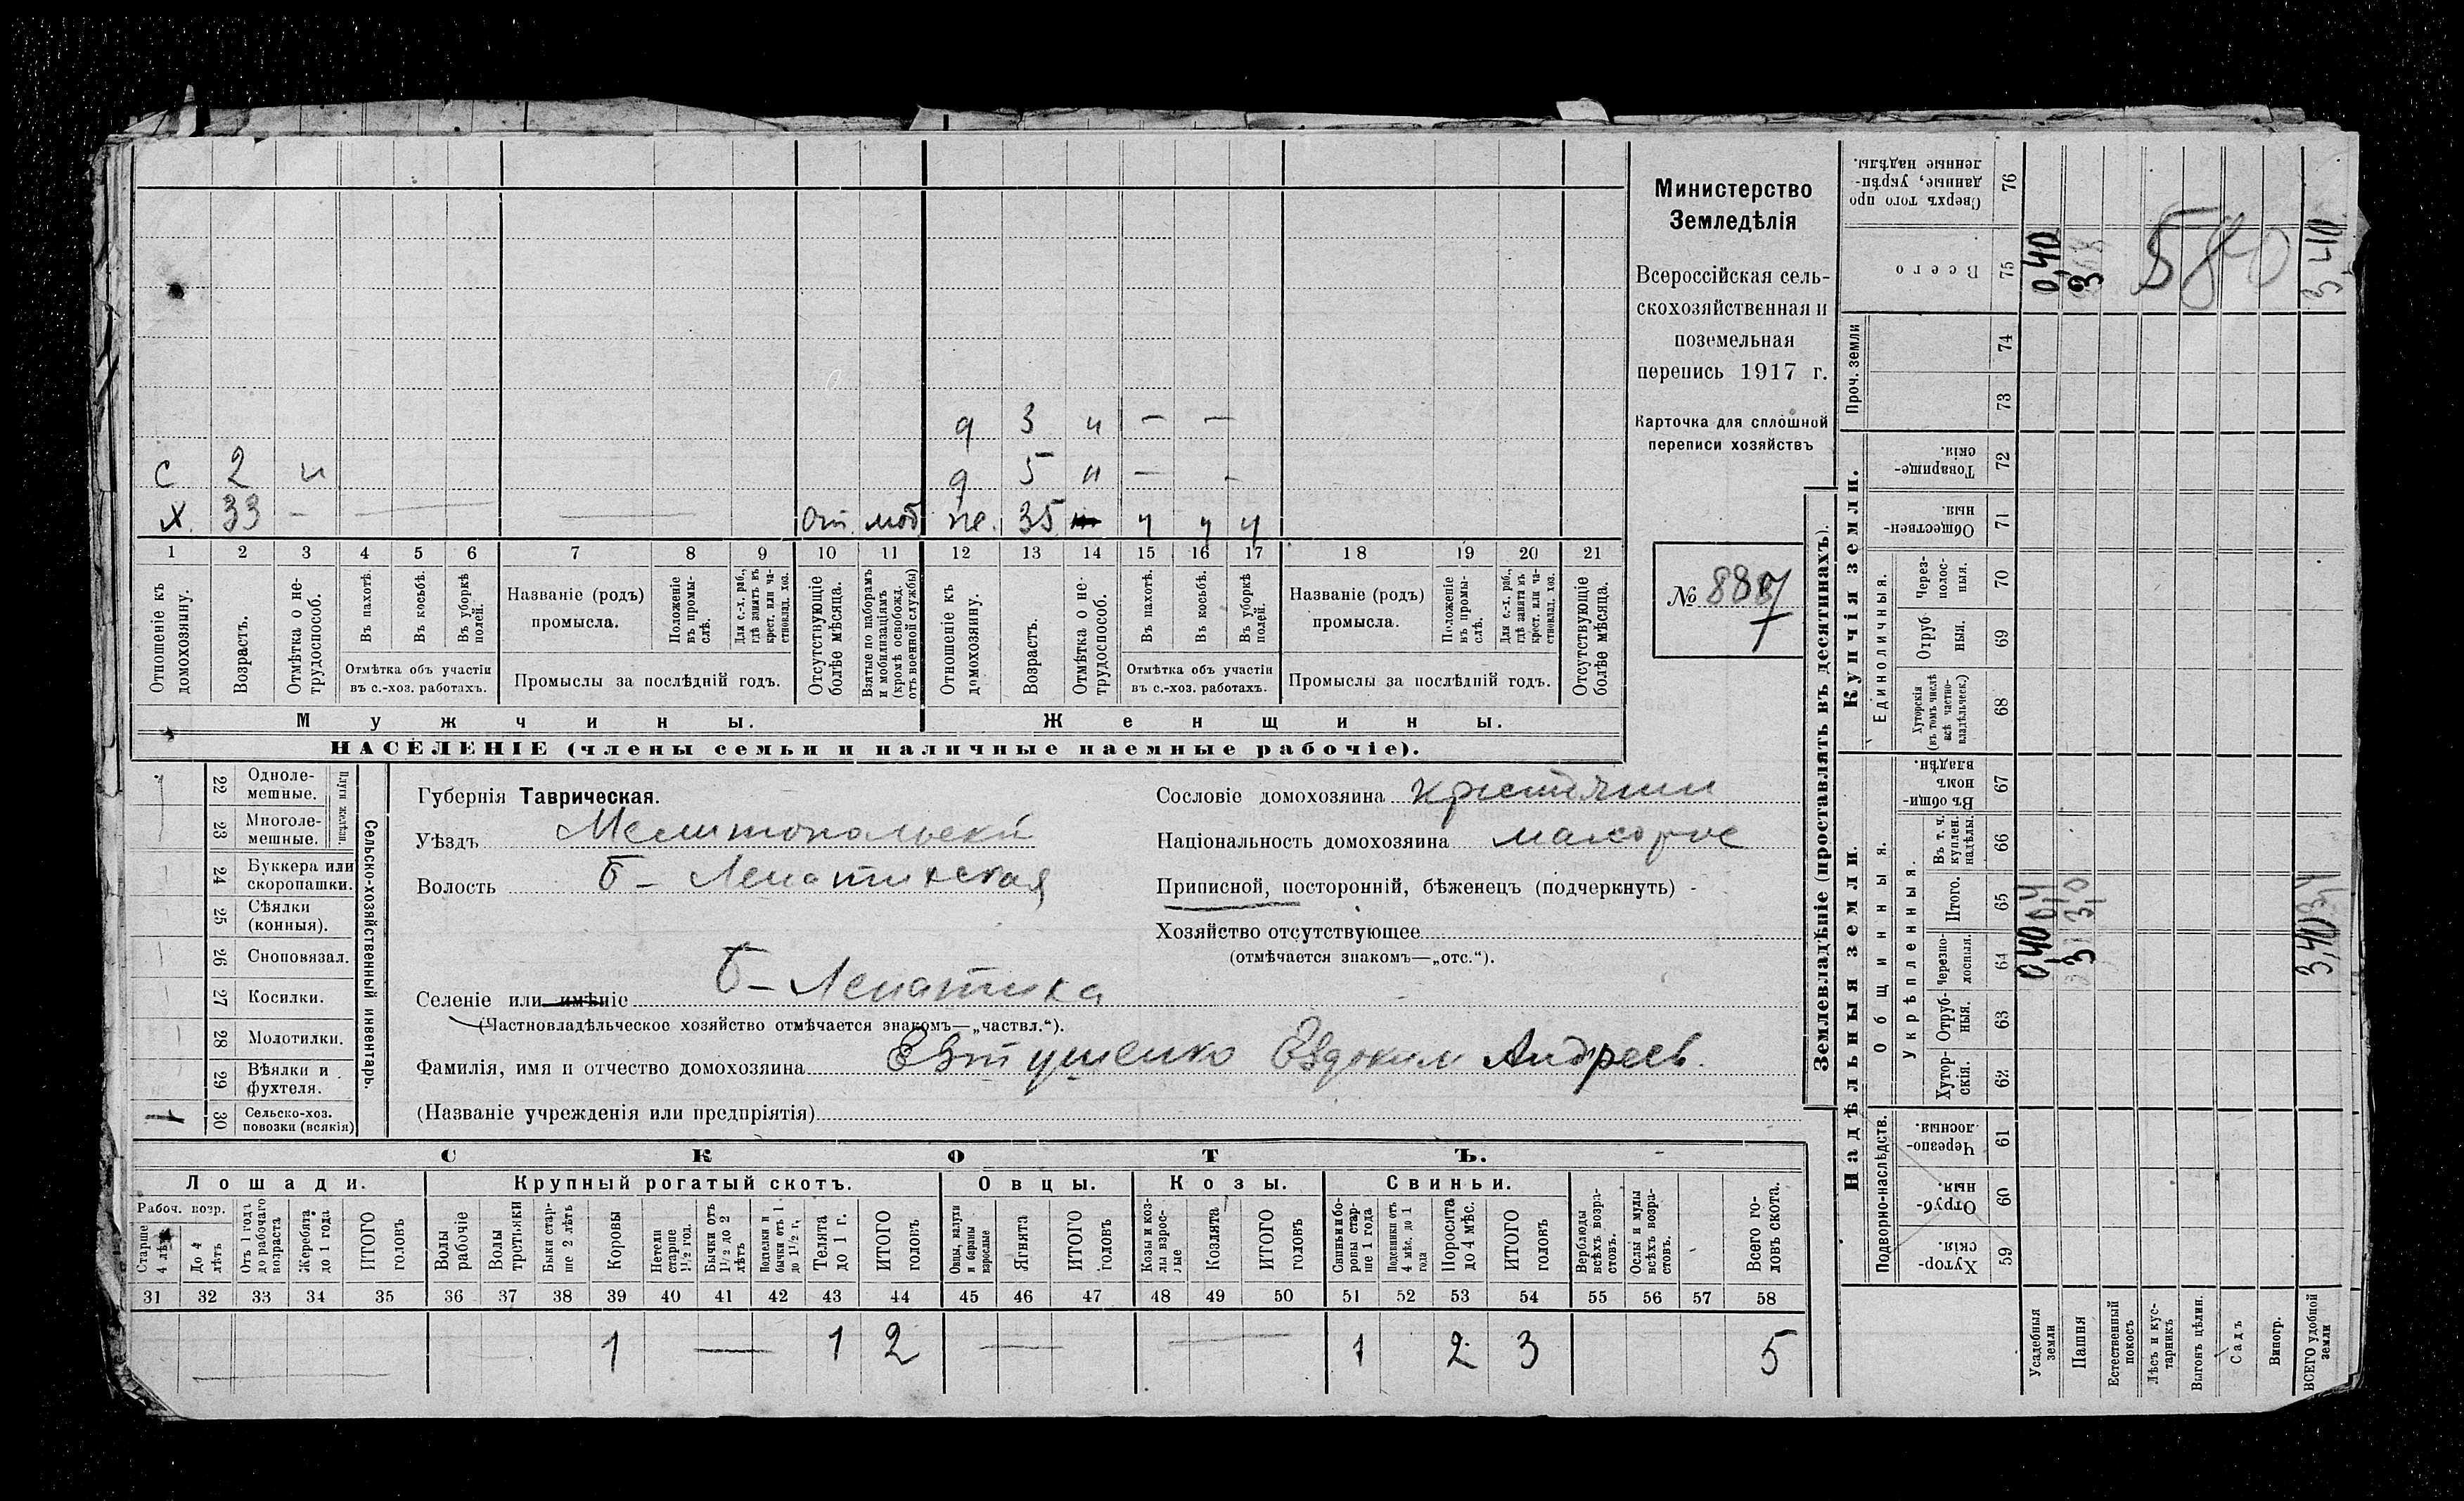 Министерство
Земледѣлія
Всероссійская сель-
скохозяйственная и
поземельная
перепись 1917 г.
Карточка для сплошной
переписи хозяйствъ
№ 887
7
д 3 н — —
с 2 н д 5 н — -
х. 33 — — — От. моб. же. 35 ч ч ч
1 2 3 4 5 6 7 8 9 10 11 12 13 14 15 16 17 18 19 20 21
Отношеніе къ домохозяину.
Возрастъ.
Отмѣтка о не-трудоспособ.
Въ пахотѣ.
Въ косьбѣ.
Въ уборкѣ полей.
Отмѣтка объ участіи въ с.-хоз. работахъ.
Названіе (родъ) промысла.
Положеніе въ промы-слѣ.
Для с.-х. раб., гдѣ занятъ въ крест. или ча-стновлад. хоз.
Промыслы за послѣдній годъ.
Отсутствующіе болѣе мѣсяца.
Взятые по наборамъ и мобилизаціямъ (кромѣ освобожд. отъ военной службы)
Отношеніе къ домохозяину.
Возрастъ.
Отмѣтка о не-трудоспособ.
Въ пахотѣ.
Въ косьбѣ.
Въ уборкѣ полей.
Отмѣтка объ участіи въ с.-хоз. работахъ.
Названіе (родъ) промысла.
Положеніе въ промы-слѣ.
Для с.-х. раб., гдѣ занята въ крест. или ча-стновлад. хоз.
Промыслы за послѣдній годъ.
Отсутствующіе болѣе мѣсяца.
Мужчины. Женщины.
НАСЕЛЕНІЕ (члены семьи и наличные наемные рабочіе).
Сельско-хозяйственный инвентарь.
Плуги желѣзн.
22 Одноле-мешные.
23 Многоле-мешные.
24 Буккера или скоропашки.
25 Сѣялки (конныя).
26 Сноповязал.
27 Косилки.
28 Молотилки.
29 Вѣялки и фухтеля.
30 Сельско-хоз. повозки (всякія) 1
Губернія Таврическая.
Уѣздъ Мелитопольскій
Волость Б - Лепатихская
Селеніе или имѣніе Б - Лепатиха
(Частновладѣльческое хозяйство отмѣчается знакомъ—„частвл.“).
Фамилія, имя и отчество домохозяина Евтушенко Евдоким Андреев.
(Названіе учрежденія или предпріятія)
Сословіе домохозяина крестянин
Національность домохозяина малорос
Приписной, посторонній, бѣженецъ (подчеркнуть)
Хозяйство отсутствующее
(отмѣчается знакомъ—„отс.“).
СКОТЪ.
Лошади. Крупный рогатый скотъ. Овцы. Козы. Свиньи.
Рабоч. возр.
Старше 4 лѣтъ
До 4 лѣтъ
Отъ 1 годъ до рабочаго возраста
Жеребята до 1 года
ИТОГО головъ
Волы рабочіе
Волы третьяки
Быки стар-ше 2 лѣтъ
Коровы
Нетели старше 1½ год.
Бычки отъ 1½ до 2 лѣтъ
Подтелки и бычки отъ 1 до 1½ г.
Телята до 1 г.
ИТОГО головъ
Овцы, валухи и бараны взрослые
Ягнята
ИТОГО головъ
Козы и коз-лы взрос-лые
Козлята
ИТОГО головъ
Свиньи и бо-ровы стар-ше 1 года
Подсвинки отъ 4 мѣс. до 1 года
Поросята до 4 мѣс.
ИТОГО головъ
Верблюды всѣхъ возра-стовъ.
Ослы и мулы всѣхъ возра-стовъ.
Всего го-ловъ скота.
31 32 33 34 35 36 37 38 39 40 41 42 43 44 45 46 47 48 49 50 51 52 53 54 55 56 57 58
1 — 1 2 — — 1 2 3 5
Землевладѣніе (проставлять въ десятинахъ).
Надѣльныя земли. Купчія земли.
Подворно-наслѣдств.
Общинныя.
Укрѣпленныя.
Единоличныя.
Проч. земли
59 Хутор-скія.
60 Отруб-ныя.
61 Черезпо-лосныя.
62 Хутор-скія.
63 Отруб-ныя.
64 Черезпо-лосныя.
65 Итого.
66 Въ т. ч. куплен. надѣлы.
67 Въ общи-номъ владѣн.
68 Хуторскія (въ томъ числѣ всѣ частно-владѣльческ.)
69 Отруб ныя.
70 Через-полос-ныя.
71 Обществен-ныя.
72 Товарище-скія.
73
74
75 Всего
76 Сверхъ того про данные, укрѣп-ленные надѣлы.
Усадебныя земли 0,40 0,40
Пашня 3 3
Естественный покосъ
Лѣсъ и кус-тарникъ
Выгонъ цѣлин.
Садъ
Виногр.
ВСЕГО удобной земли 3,40 3,40
580